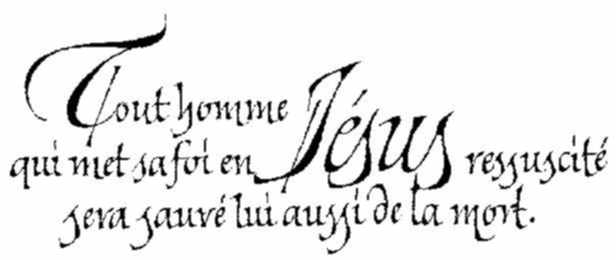 Tout homme
qui met sa foi en Jésus ressuscité
sera sauvé lui aussi de la mort.